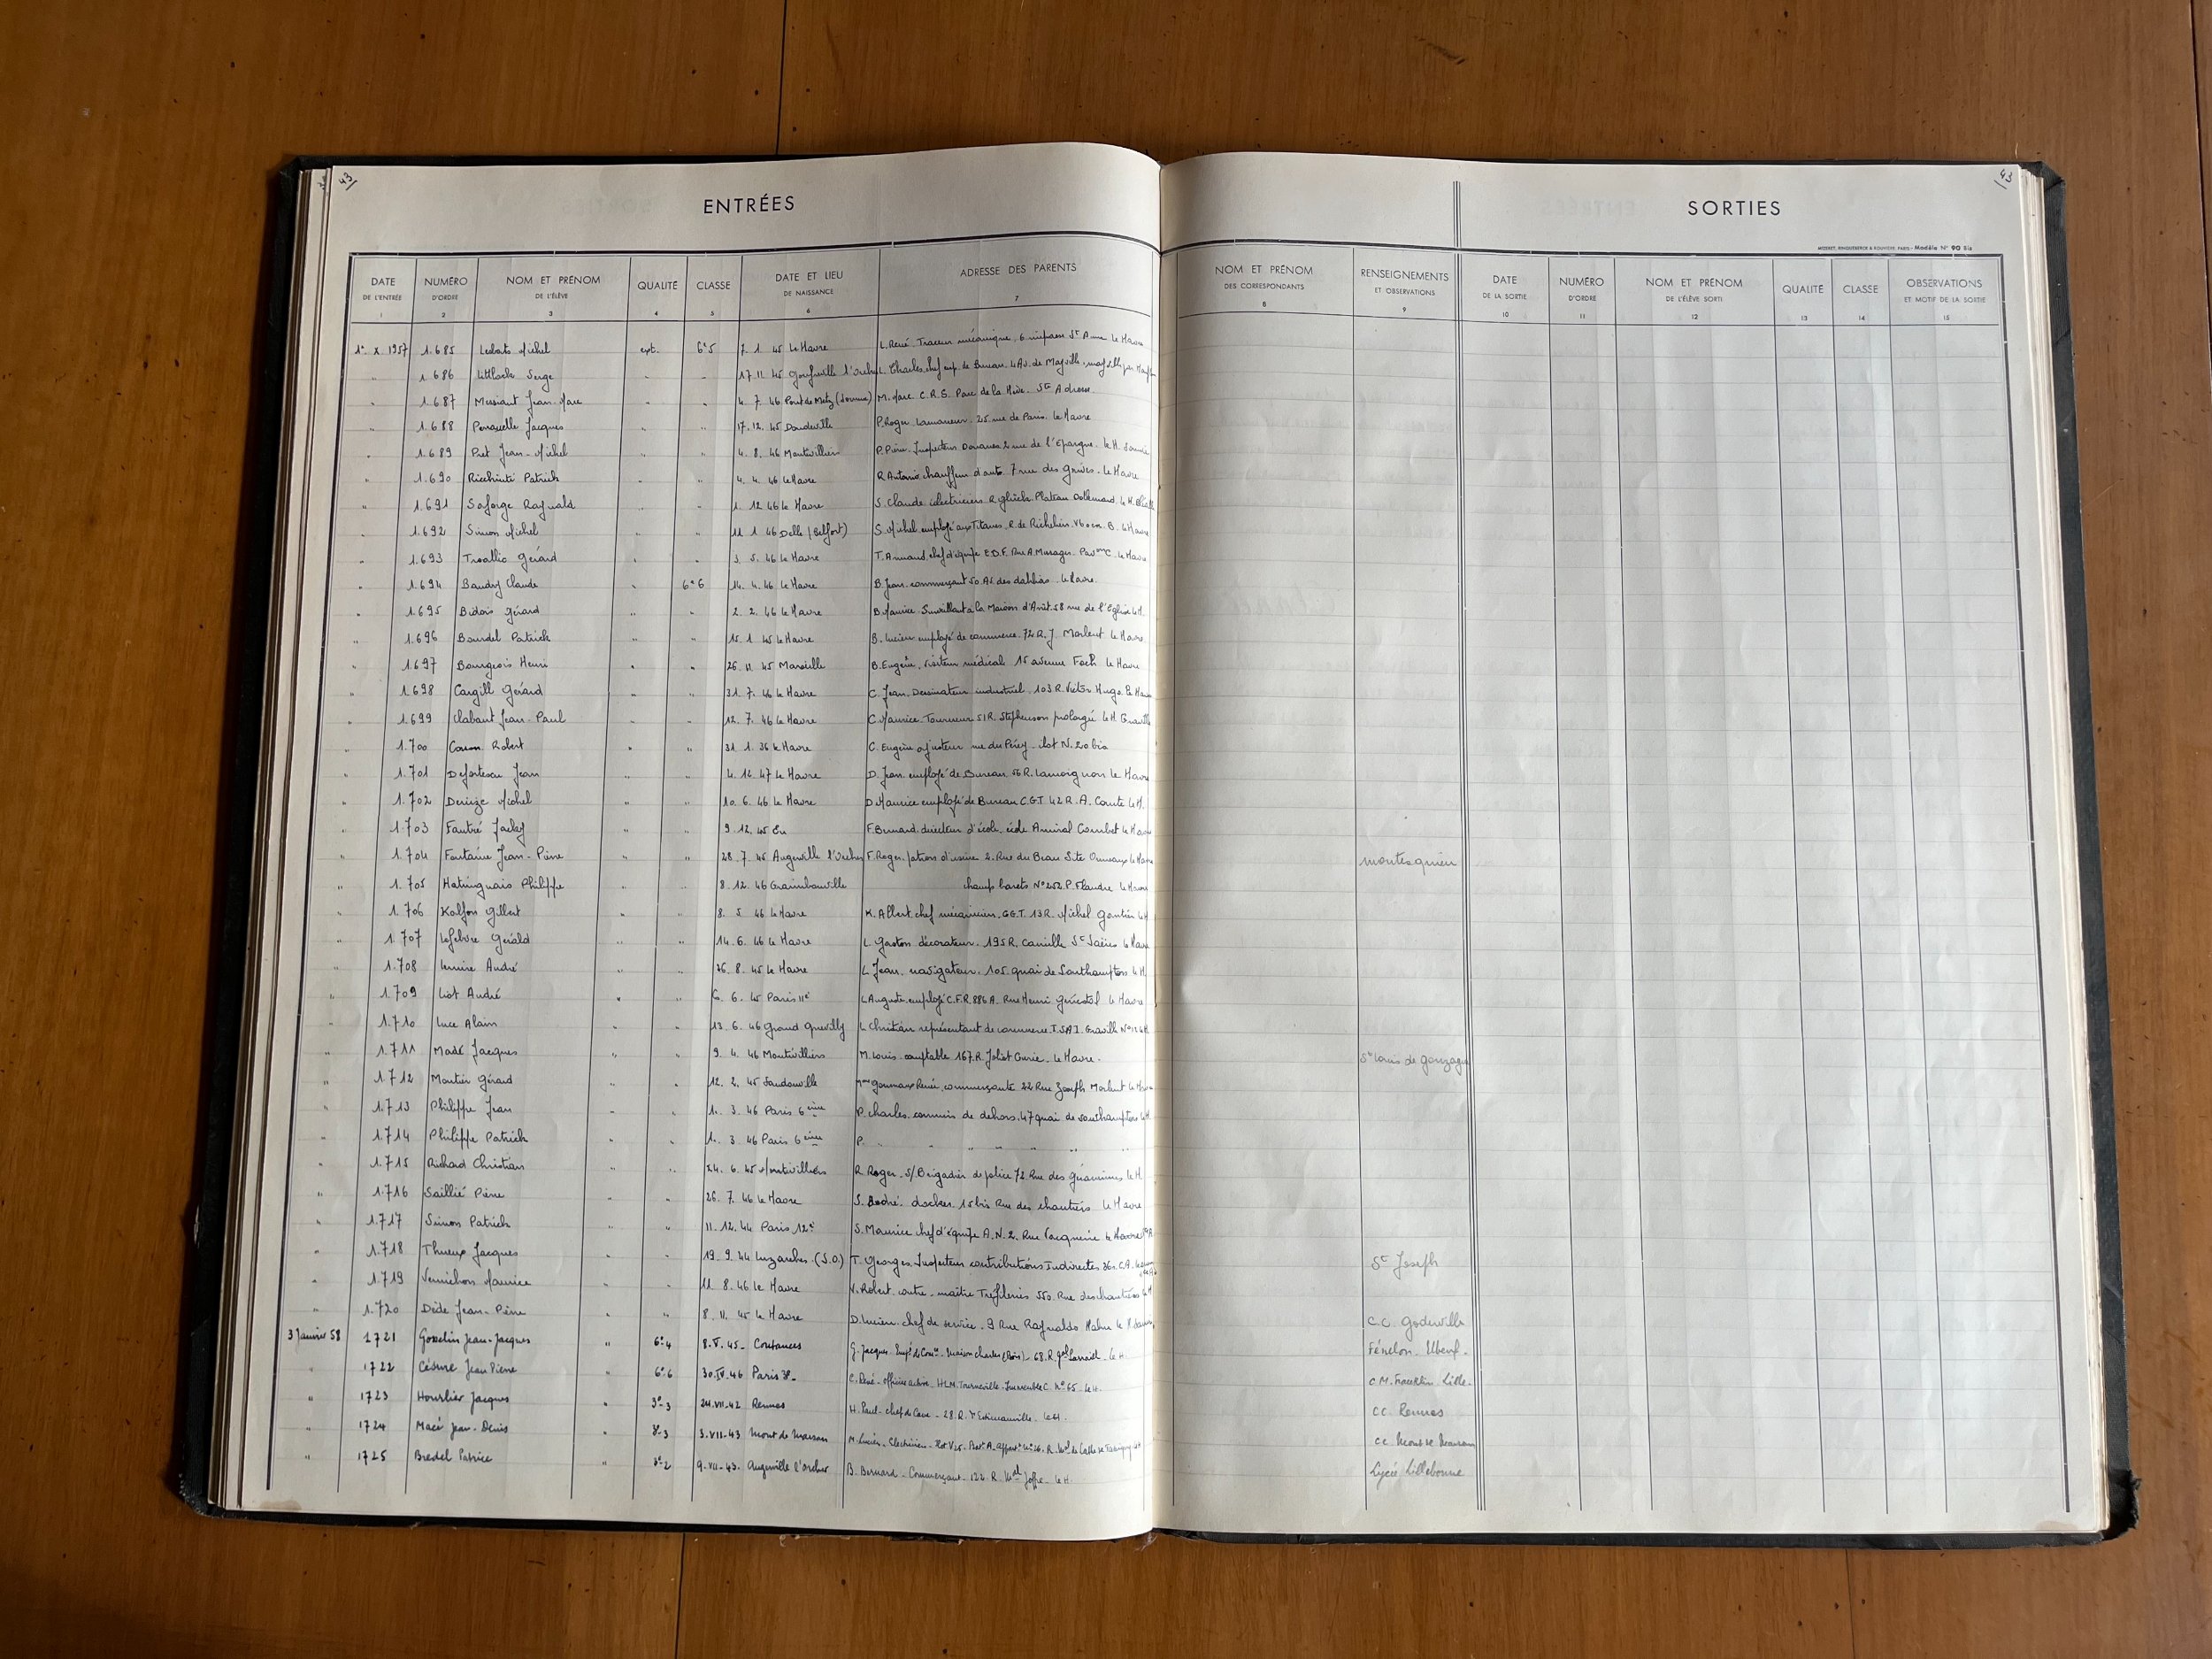 43
43
ENTRÉES
SORTIES
MODÈLE N° 90 Bis
DATE DE L'ENTRÉE 1 NUMÉRO D'ORDRE 2 NOM ET PRÉNOM DE L'ÉLÈVE 3 QUALITÉ 4 CLASSE 5 DATE ET LIEU DE NAISSANCE 6 ADRESSE DES PARENTS 7 NOM ET PRÉNOM DES CORRESPONDANTS 8 RENSEIGNEMENTS ET OBSERVATIONS 9 DATE DE LA SORTIE 10 NUMÉRO D'ORDRE 11 NOM ET PRÉNOM DE L'ÉLÈVE SORTI 12 QUALITÉ 13 CLASSE 14 OBSERVATIONS ET MOTIF DE LA SORTIE 15
1er X 1957 1.685 Michel ext. 6e5 7 1 45 Le Havre L. René Traceur mécanique 6 impasse Ste Anne Le Havre
" 1.686 Serge " " 17 11 45 Gonfreville l'Orcher L. Charles
" 1.687 Messiant Jean-Marc " " 4 7 46 Pont de Metz (Somme) M. Marc C.R.S. Parc de la Hève Ste Adresse
" 1.688 Jacques " " 17.12.45 Doudeville P. Roger Lamaneur 25 rue de Paris Le Havre
" 1.689 Jean-Michel " " 4.8.46 Montivilliers P. Pierre Inspecteur Douanes 2 rue de l'Epargne le H.
" 1.690 Patrick " " 4.4.46 Le Havre R. Antonio chauffeur d'auto 7 rue des Grives Le Havre
" 1.691 Saforge Raynald " " 1.12 46 le Havre S. Claude électricien R. Glück Plateau Dollemard le H.
" 1.692 Simon Michel " " 11 1 46 Delle (Belfort) S. Michel employé aux Titanes R. de Richelieu le Havre
" 1.693 Troallic Gérard " " 3.5.46 le Havre T. Armand chef d'équipe E.D.F. Rue A. le Havre
" 1.694 Baudry Claude " 6e6 14.4.46 le Havre B. Jean commerçant 50 Av. des dahlias le Havre
" 1.695 Bidois Gérard " " 2.2.46 le Havre B. Maurice Surveillant à la Maison d'Arrêt 58 rue de l'Eglise le H.
" 1.696 Bourdel Patrick " " 15.1.45 le Havre B. Lucien employé de commerce 72 R. J. Morlent le Havre
" 1.697 Bourgeois Henri " " 26.11.45 Marseille B. Eugène visiteur médical 15 avenue Foch le Havre
" 1.698 Cargill Gérard " " 31.7.46 le Havre C. Jean Dessinateur industriel 103 R. Victor Hugo le Havre
" 1.699 Clabaut Jean-Paul " " 12.7.46 le Havre C. Maurice Tourneur 51 R. Stephenson prolongée le H. Graville
" 1.700 Robert " " 31.1.36 le Havre C. Eugène ajusteur rue du Perrey ilot N. 20 bis
" 1.701 Jean " " 4.12.47 le Havre D. Jean employé de Bureau 56 R. Lamoignon le Havre
" 1.702 Michel " " 10.6.46 le Havre D. Maurice employé de Bureau C.G.T. 42 R. A. Comte le H.
" 1.703 Fautré Jacky " " 9.12.45 Eu F. Bernard directeur d'école école Amiral Courbet le Havre
" 1.704 Fontaine Jean-Pierre " " 28.7.45 Angerville l'Orcher F. Roger patron d'usine 2 Rue du Beau Site le Havre Montesquieu
" 1.705 Hatinguais Philippe " " 8.12.46 Grainbouville champs barets N° 252 P. Flandre le Havre
" 1.706 Kalfon Gilbert " " 8.5.46 le Havre K. Albert chef mécanicien C.G.T. 13 R. Michel le H.
" 1.707 Lefebvre Gérald " " 14.6.46 le Havre L. Gaston décorateur 195 R. Camille St Saëns le Havre
" 1.708 André " " 26.8.45 le Havre L. Jean navigateur 105 quai de Southampton le H.
" 1.709 Liot André " " 6.6.45 Paris 11e L. Auguste employé C.F.R. 886 A. Rue Henri Génestal le Havre
" 1.710 Luce Alain " " 13.6.46 Grand Quevilly L. Christian représentant de commerce I.S.A.I. Graville
" 1.711 Madé Jacques " " 9.4.46 Montivilliers M. Louis comptable 167 R. Joliot Curie le Havre St Louis de Gonzague
" 1.712 Montier Gérard " " 12.2.45 Sandouville Mme Renée commerçante 22 Rue Joseph Morlent le Havre
" 1.713 Philippe Jean " " 1.3.46 Paris 6ème P. Charles commis de dehors 47 quai de Southampton le H.
" 1.714 Philippe Patrick " " 1.3.46 Paris 6ème P. " " " " "
" 1.715 Richard Christian " " 24.6.45 Montivilliers R. Roger S/Brigadier de police 72 Rue des Géraniums le H
" 1.716 Saillié Pierre " " 26.7.46 le Havre S. André docker 15 bis Rue des chantiers le Havre
" 1.717 Simon Patrick " " 11.12.44 Paris 12e S. Maurice chef d'équipe A.N. 2 Rue le Havre
" 1.718 Thueux Jacques " " 19.9.44 Luzarches (S.O.) T. Georges Inspecteur contributions Indirectes St Joseph
" 1.719 Vernichon Maurice " " 11.8.46 le Havre V. Robert contre-maître Tréfileries 550 Rue des chantiers le H
" 1.720 Dède Jean-Pierre " " 8.11.45 le Havre D. Lucien chef de service 9 Rue Raynaldo Hahn le H. C.C. Goderville
3 Janvier 58 1721 Gosselin Jean-Jacques " 6e4 8.V.45 Coutances G. Jacques 68 R. Gal Sarrail le H. Fénelon Elbeuf
" 1722 Césure Jean Pierre 6e6 30.IV.46 Paris C. René officier H.L.M. Tourneville Immeuble C. N° 65 le H. C.M. Franklin Lille
" 1723 Hourlier Jacques " 3e3 24.VII.42 Rennes H. Paul chef de Cave 28 R. d'Estimauville le H. C.C. Rennes
" 1724 Macé Jean-Denis " 3e3 3.VII.43 Mont de Marsan M. Lucien Electricien C.C. Mont de Marsan
" 1725 Bredel Patrice " 3e2 9.VII.43 Angerville l'Orcher B. Bernard Commerçant 124 R. Mal Joffre le H. Lycée Lillebonne